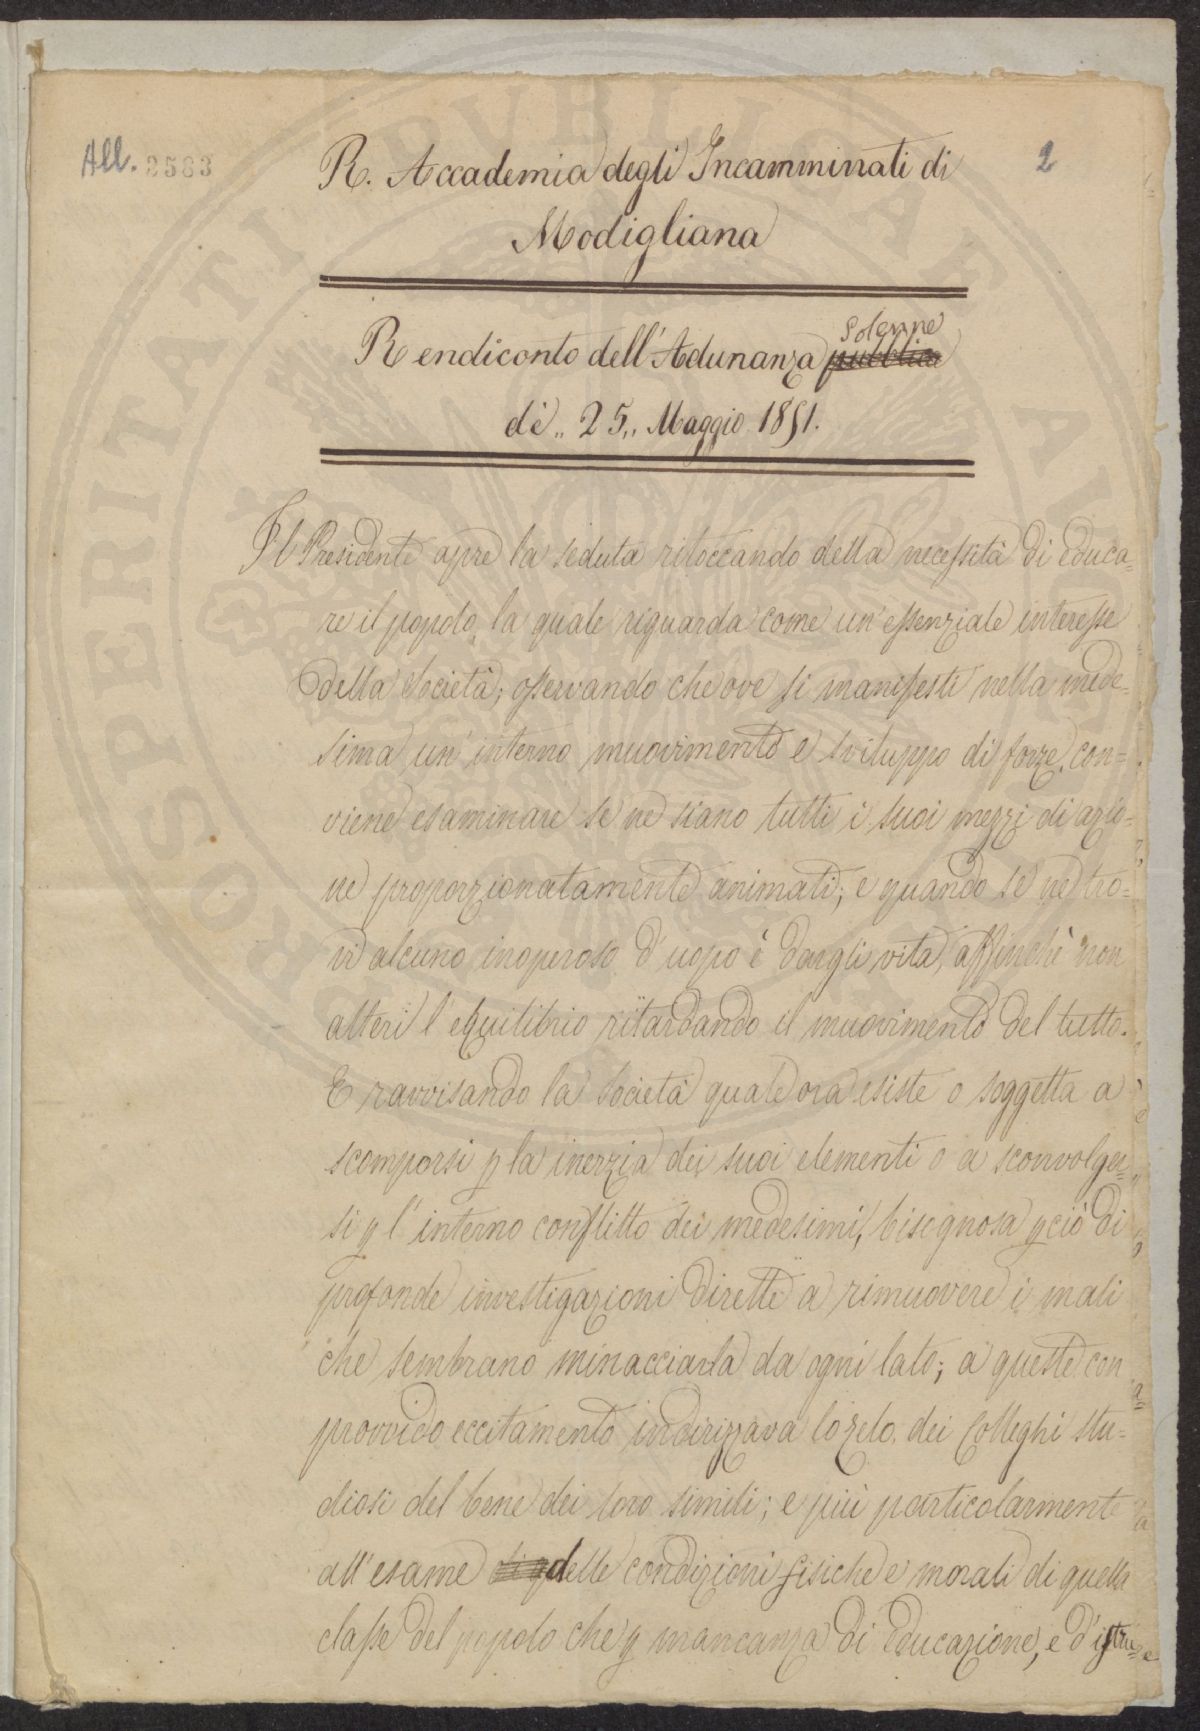 All. 3583
2
R. Accademia degli Incamminati di
Modigliana
Rendiconto dell'Adunanza ~~pubblica~~ Solenne
dè „ 25 „ Maggio 1851.
Il Presidente apre la seduta ritoccando della necessità di educa=
re il popolo, la quale riguarda come un'essenziale interesse
della Società; osservando che ove si manifesti nella mede=
sima un'interno muovimento e sviluppo di forze, con=
viene esaminare se ne siano tutti i suoi mezzi di azio=
ne proporzionatamente animati; e quando se ne tro=
vi alcuno inoperoso d'uopo è dargli vita, affinchè non
alteri l'equilibrio ritardando il muovimento del tutto.
E ravvisando la Società quale ora esiste o soggetta a
scomporsi p la inerzia dei suoi elementi o a sconvolger=
si p l'interno conflitto dei medesimi, bisognosa pciò di
profonde investigazioni dirette a rimuovere i mali
che sembrano minacciarla da ogni lato; a queste con
provvido eccitamento indirizzava lo zelo dei Colleghi stu=
diosi del bene dei loro simili; e più particolarmente
all'esame delle condizioni fisiche e morali di quella
classe del popolo che p mancanza di educazione, e d'istru=
PROSPERITATI PVBLICAE AVGENDAE